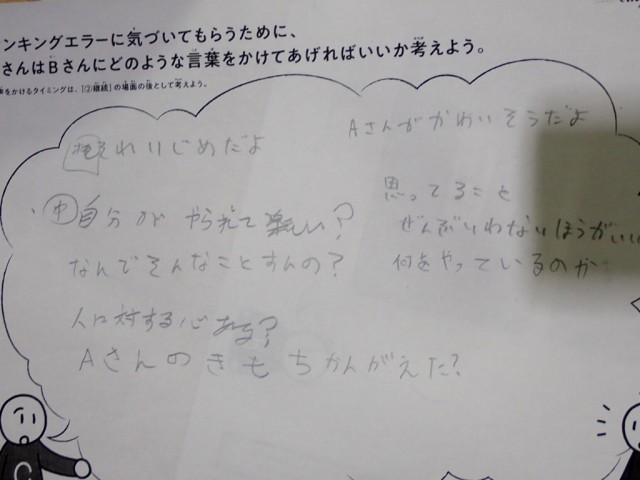 ンキングエラーに気づいてもらうために、
さんはBさんにどのような言葉をかけてあげればいいか考えよう。
をかけるタイミングは、「②継続」の場面の後として考えよう。
それいじめだよ
Aさんがかわいそうだよ
中 自分がやられて楽しい?
なんでそんなことすんの?
人に対する心ある?
Aさんのきもちかんがえた?
思ってること
ぜんぶいわないほうがいい
何をやっているのか
C